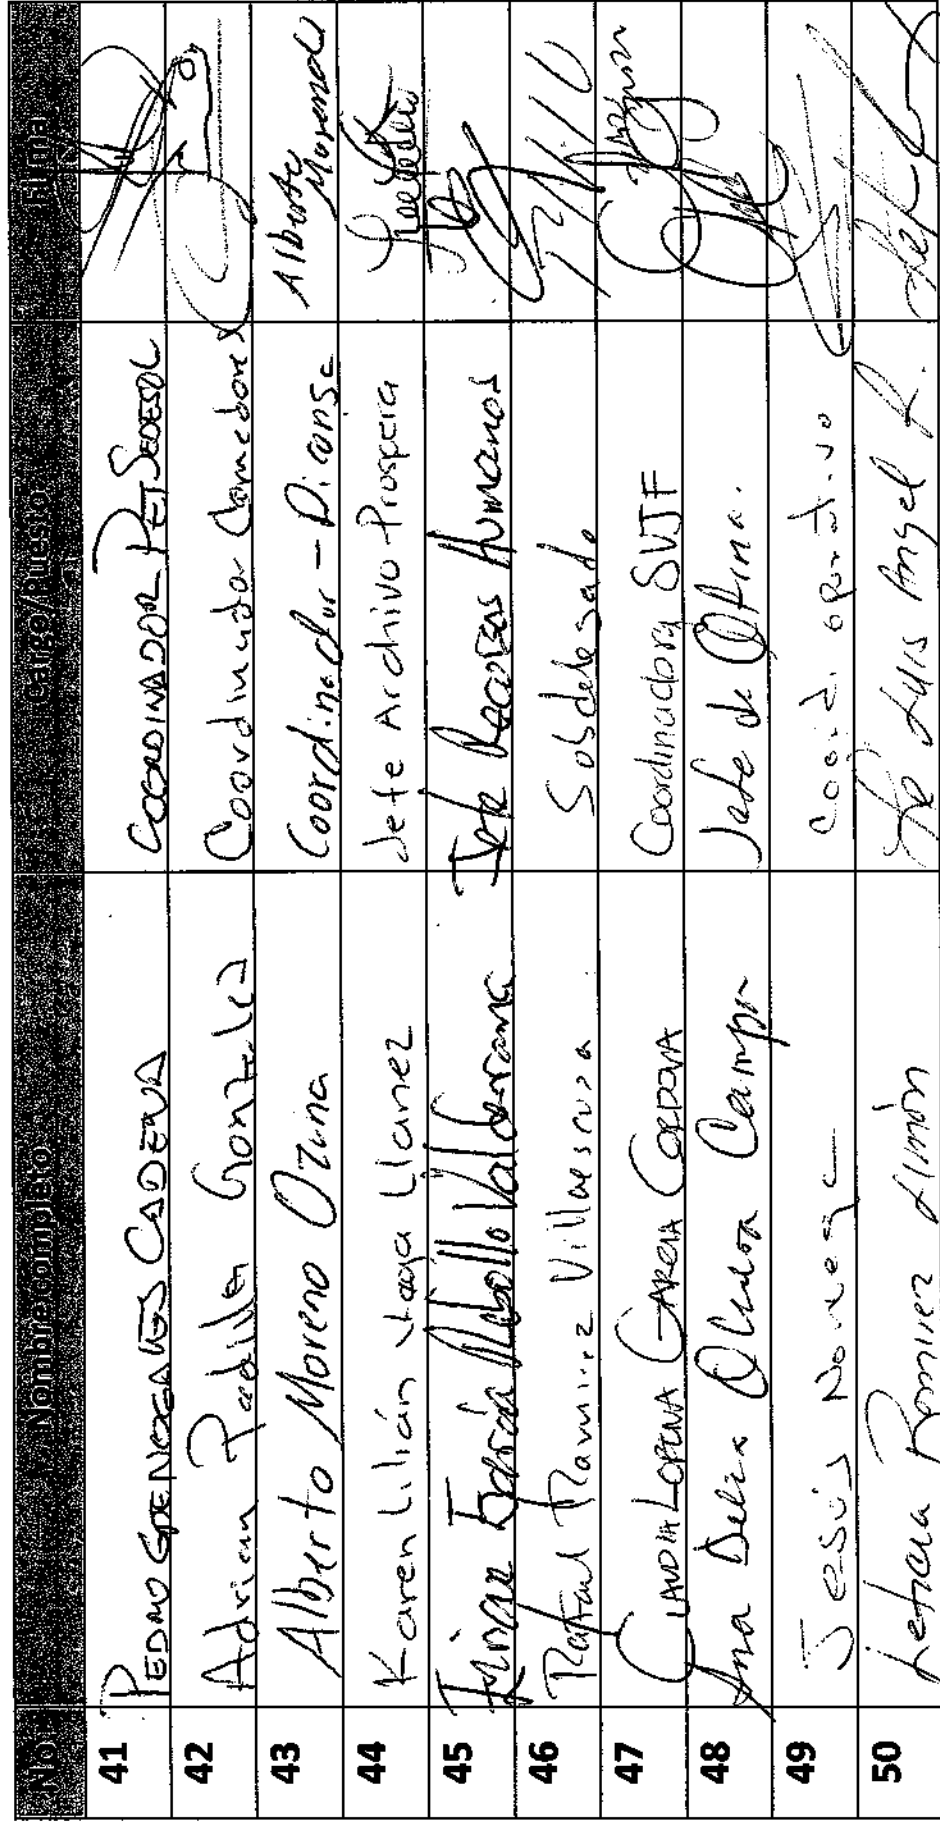 No Nombre completo Cargo/Puesto Firma
41 PEDRO CADENA COORDINADOR PET SEDESOL
42 Adrian Padilla Gonzalez Coordinador Comedores
43 Alberto Moreno Ozuna Coordinador - Diconsa Alberto Moreno
44 Karen Lilián Vega Llanez Jefe Archivo Prospera
45 Jefe Recursos Humanos
46 Rafael Ramirez Villaescusa Subdelegado
47 CLAUDIA LORENA GARCIA CORDOVA Coordinadora SVJF
48 Ana Delia Ochoa Campa Jefe de Ofina.
49 Jesús Noriega Coord. operativo
50 Leticia Ramirez Limón Luis Angel R.